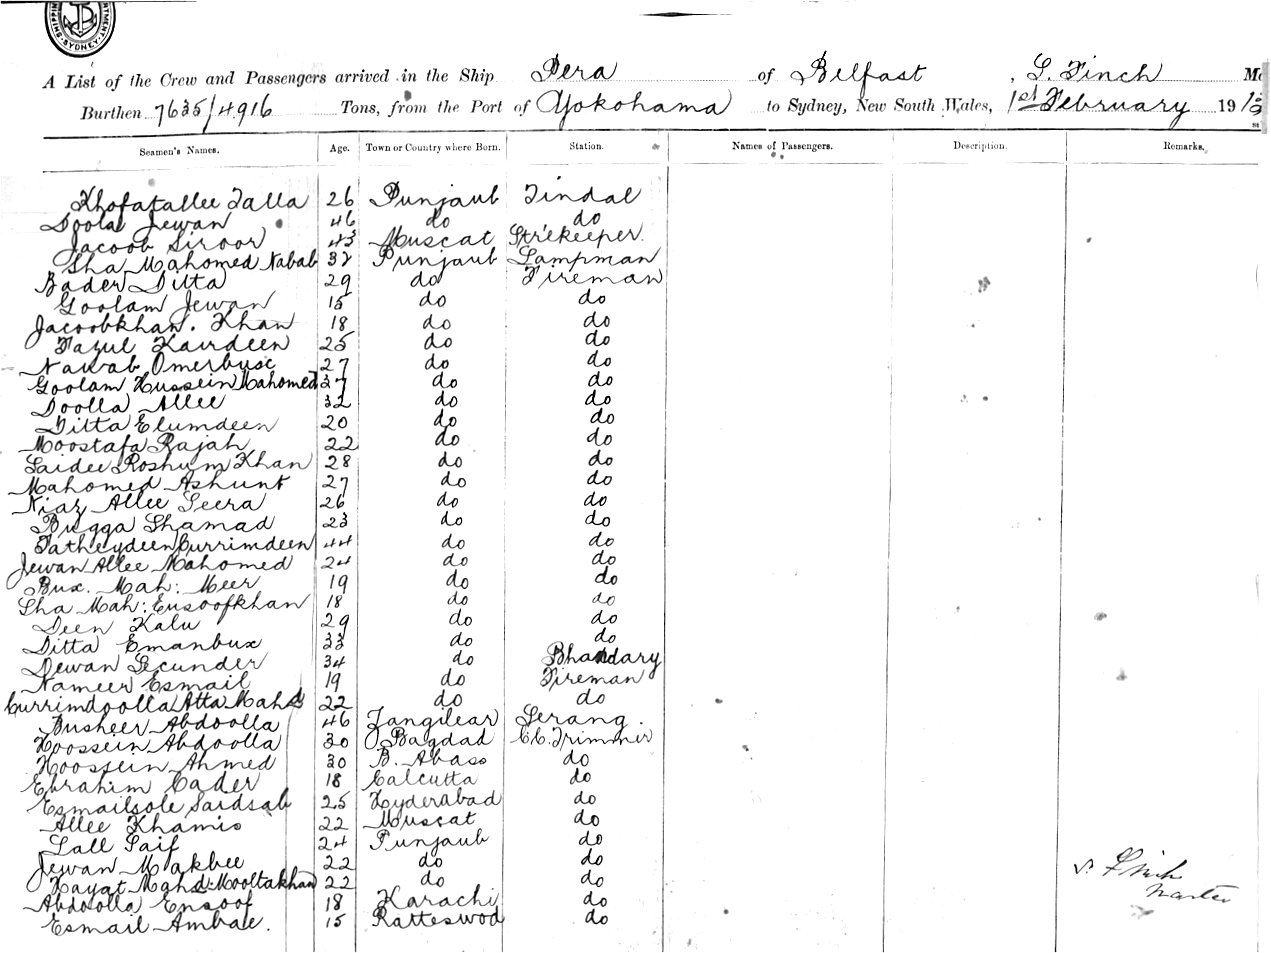 SHIPPING DEPARTMENT SYDNEY
A List of the Crew and Passengers arrived in the Ship Pera of Belfast, S. Finch
Burthen 7635/4916 Tons, from the Port of Yokohama to Sydney, New South Wales, 1st February 19
Seamen's Names. Age. Town or Country where Born. Station. Names of Passengers. Description. Remarks.
Khofatallee Talla 26 Punjaub Tindal
Doola Jewan 46 do do
Jacoob Siroor 43 Muscat Str'ekeeper
Sha Mahomed Nabab 32 Punjaub Lampman
Bader Ditta 29 do Fireman
Goolam Jewan 15 do do
Jacoobkhan. Khan 18 do do
Fazul Kairdeen 25 do do
Nawab Omerbuse 27 do do
Goolam Hussein Mahomed 37 do do
Doolla Allee 32 do do
Ditta Elumdeen 20 do do
Moostafa Rajah 22 do do
Saidee Roshum Khan 28 do do
Mahomed Ashunt 27 do do
Niaz Allee Seera 26 do do
Bugga Shamad 23 do do
Fatheydeen Currimdeen 44 do do
Jewan Allee Mahomed 24 do do
Bux. Mah: Meer 19 do do
Sha Mah: Eusoofkhan 18 do do
Deen Kalu 29 do do
Ditta Emanbux 33 do do
Dewan Secunder 34 do Bhandary
Nameer Esmail 19 do Fireman
Currimdoolla Atta Mahd 22 do do
Busheer Abdoolla 46 Zangilear Serang.
Hoossein Abdoolla 30 Bagdad C.C. Trimmer
Hoossein Ahmed 30 B. Abass do
Ebrahim Cader 18 Calcutta do
Esmailsole Saidsab 25 Hyderabad do
Allee Khamis 22 Muscat do
Lall Saif 24 Punjaub do
Jewan Makbee 22 do do
Hayat Mahd: Mooltakhan 22 do do
Abdoolla Ensoof 18 Karachi do
Esmail Ambae. 15 Ratteswod do
S. Finch
Master